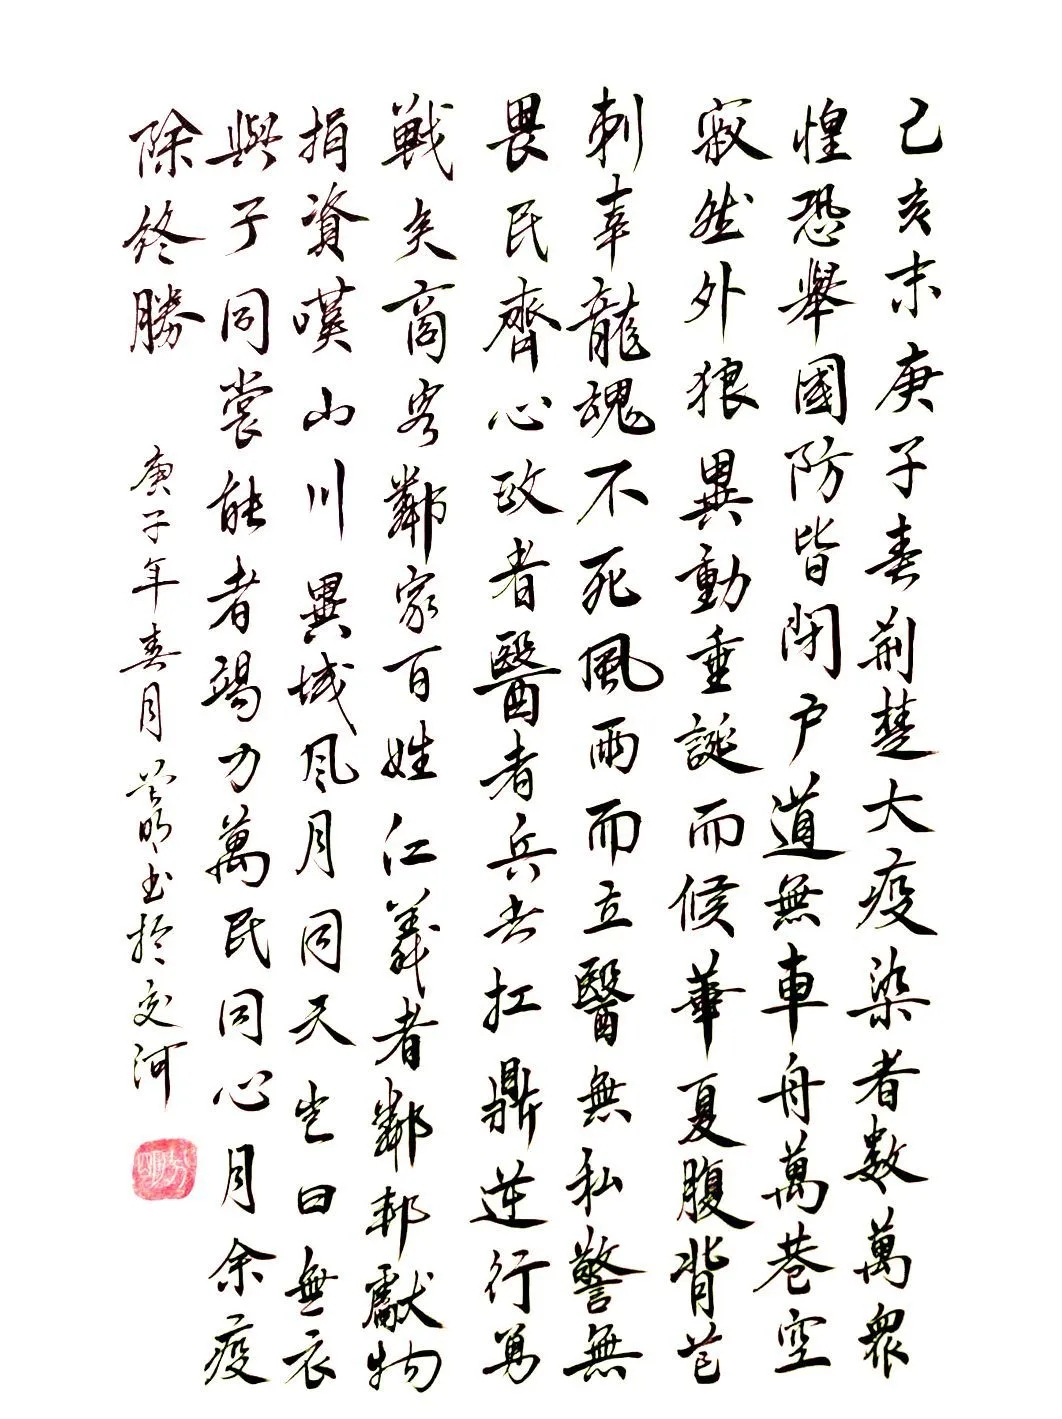 己亥末庚子春荆楚大疫染者數萬眾
惶恐舉國防皆閉户道無車舟萬巷空
寂然外狼異動垂誕而候華夏腹背芒
刺幸龍魂不死風雨而立醫無私警無
畏民齊心政者醫者兵者扛鼎逆行勇
戰矣商客鄰家百姓仁義者鄰邦獻物
捐資嘆山川異域风月同天豈曰無衣
與子同裳能者竭力萬民同心月余疫
除終勝
庚子年春月明书於交河